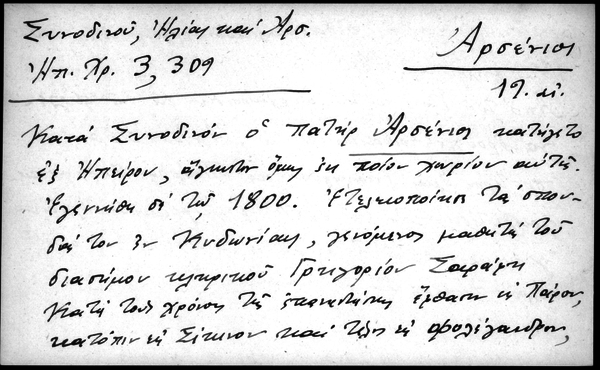 Συνοδινοῦ, Ἠλίας καὶ Ἀρσ.
Ἠπ. Χρ. 3, 309
Ἀρσένιος
19. αἰ.
Κατὰ Συνοδινόν ὁ πατὴρ Ἀρσένιος κατήγετο
ἐξ Ἠπείρου, ἄγνωστον ὅμως ἐκ ποίου χωρίου αὐτῆς.
Ἐγεννήθη σὲ τῷ 1800. Ἐτελειοποίησε τὰς σπου-
δάς του ἐν Κυδωνίαις, γενόμενος μαθητὴς τοῦ
διασήμου κληρικοῦ Γρηγορίου Σαράφη
Κατὰ τοὺς χρόνους τῆς ἐπαναστάσεως ἔφθασεν εἰς Πάρον,
κατόπιν εἰς Σίκινον καὶ τέλος εἰς Φολέγανδρον,